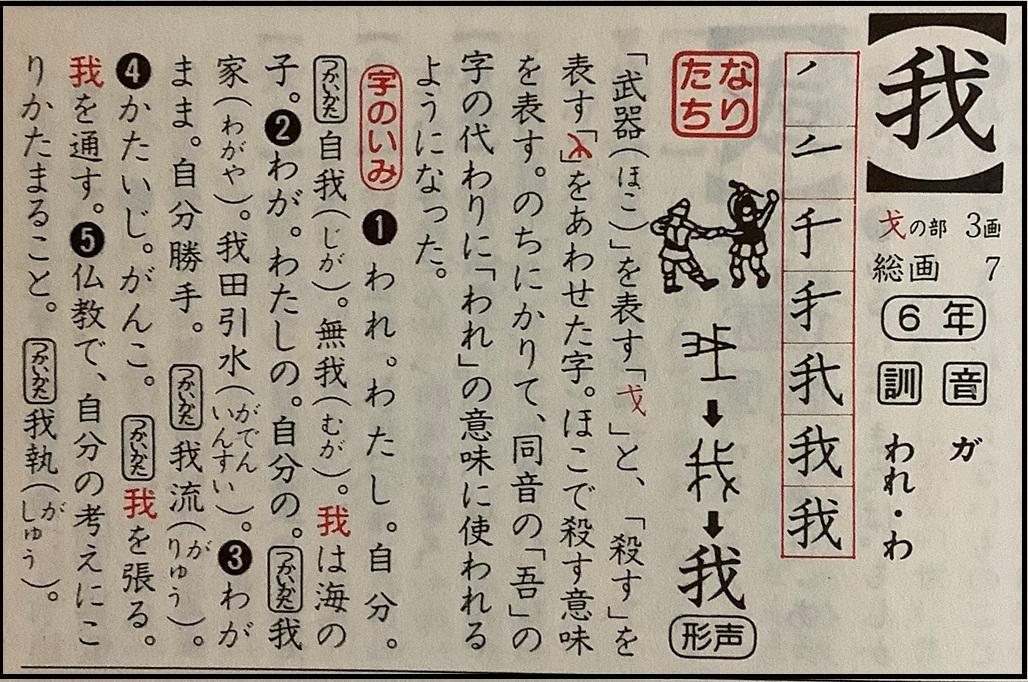 【我】
戈の部 3画
総画 7
6年
音 ガ
訓 われ・わ
なりたち
我
形声
「武器(ほこ)」を表す「戈」と、「殺す」を
表す「」をあわせた字。ほこで殺す意味
を表す。のちにかりて、同音の「吾」の
字の代わりに「われ」の意味に使われる
ようになった。
字のいみ ❶われ。わたし。自分。
つかいかた 自我(じが)。無我(むが)。我は海の
子。❷わが。わたしの。自分の。つかいかた 我
家(わがや)。我田引水(がでんいんすい)。❸わが
まま。自分勝手。つかいかた 我流(がりゅう)。
❹かたいじ。がんこ。つかいかた 我を張る。
我を通す。❺仏教で、自分の考えにこ
りかたまること。つかいかた 我執(がしゅう)。